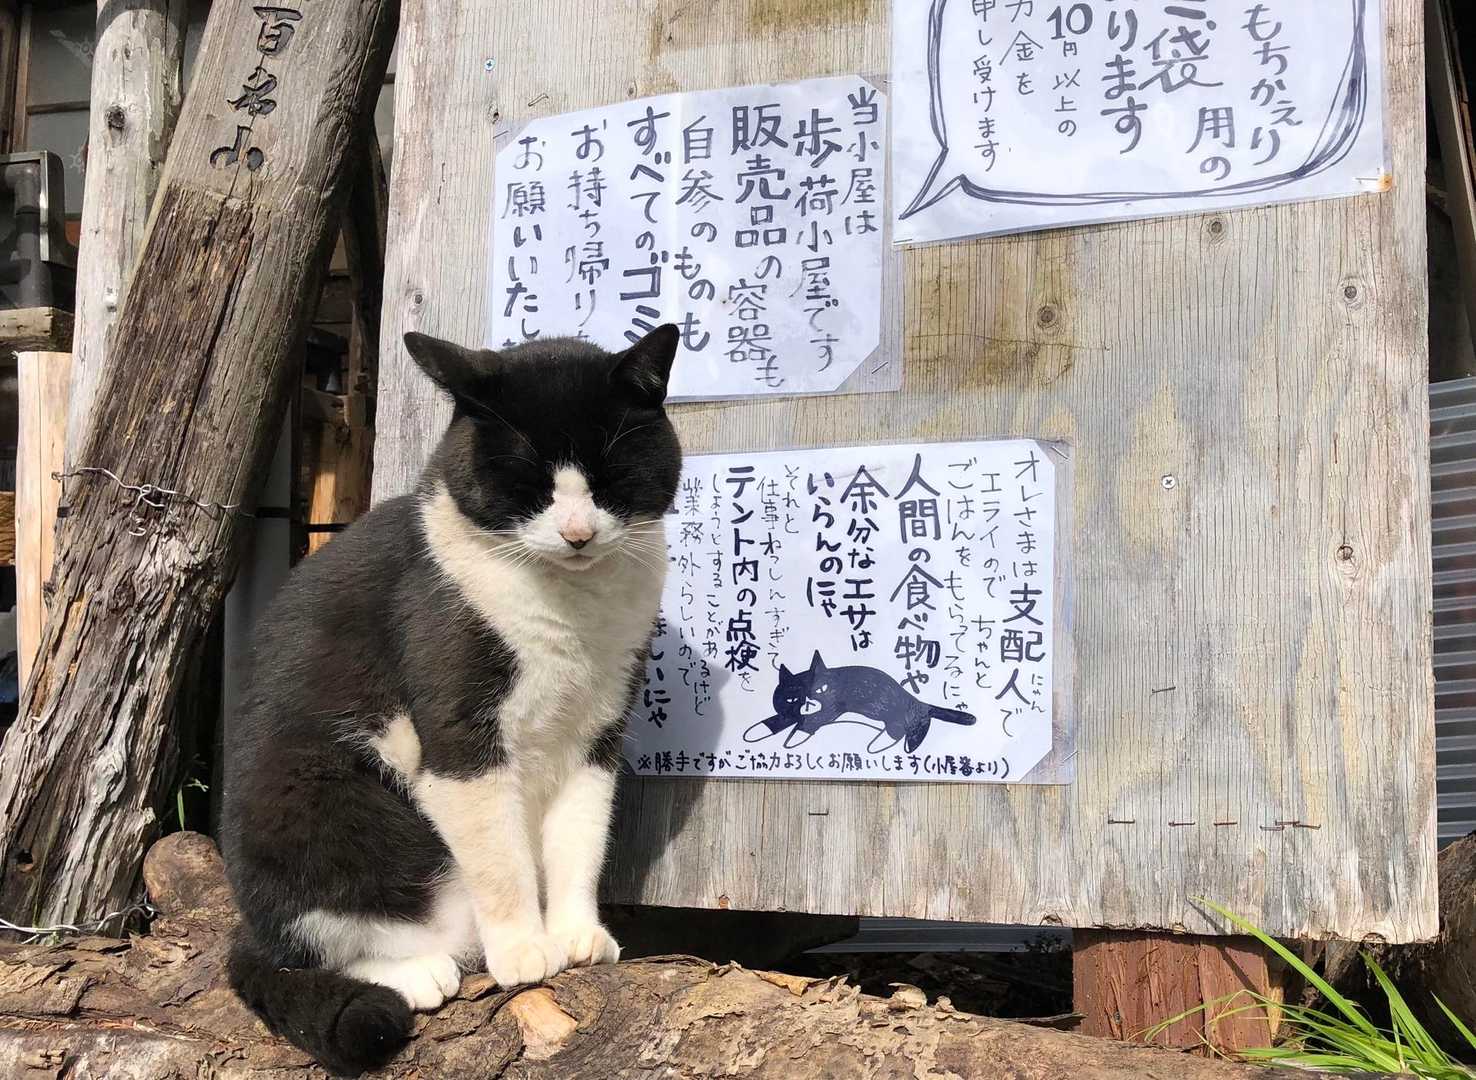 百名山
もちかえり
用の
袋
ります
10円以上の
力金を
申し受けます
当小屋は
歩荷小屋です
販売品の容器も
自参のものも
すべてのゴミ
お持ち帰り
お願いいたし
オレさまは支配人で
にゃん
エライので ちゃんと
ごはんを もらってるにゃ
人間の食べ物や
余分なエサは
いらんのにゃ
それと
仕事ねっしんすぎて
テント内の点検を
しようとすることがあるけど
業務外らしいので
しいにゃ
※勝手ですがご協力よろしくお願いします(小屋番より)